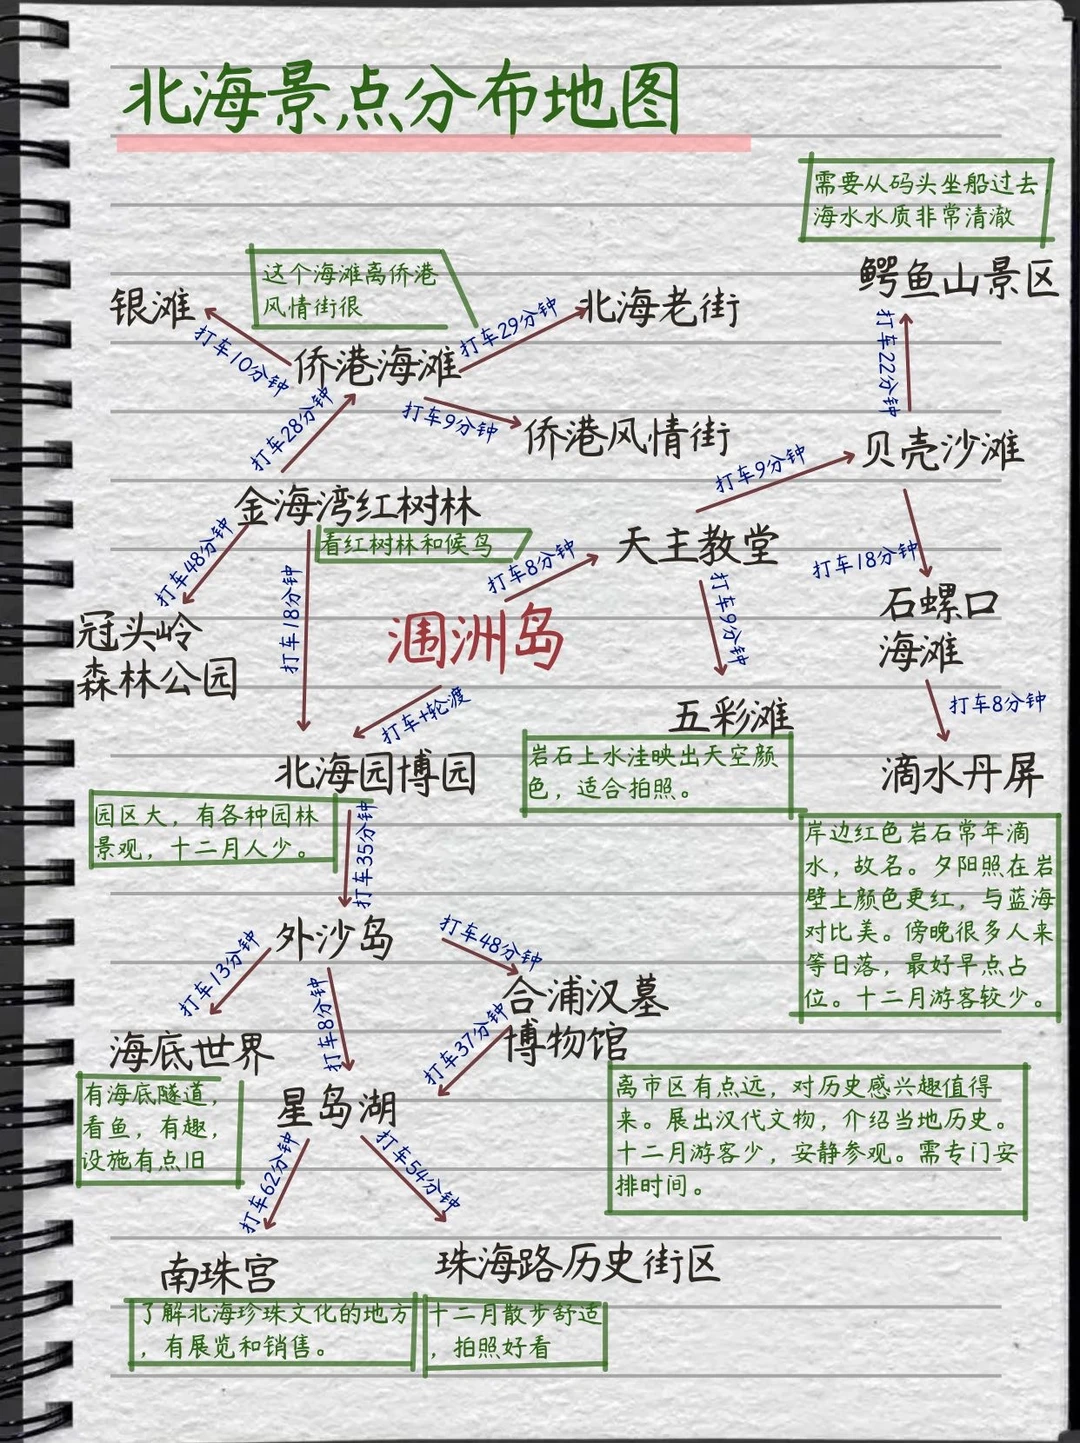 北海景点分布地图
需要从码头坐船过去，
海水水质非常清澈
鳄鱼山景区
这个海滩离侨港
风情街很
银滩
北海老街
打车10分钟
打车29分钟
打车22分钟
侨港海滩
打车28分钟
打车9分钟
侨港风情街
贝壳沙滩
打车9分钟
金海湾红树林
看红树林和候鸟
打车48分钟
打车18分钟
打车8分钟
天主教堂
打车18分钟
打车9分钟
冠头岭
森林公园
涠洲岛
石螺口
海滩
打车+轮渡
打车8分钟
五彩滩
岩石上水洼映出天空颜
色，适合拍照。
北海园博园
滴水丹屏
园区大，有各种园林
景观，十二月人少。
打车35分钟
岸边红色岩石常年滴
水，故名。夕阳照在岩
壁上颜色更红，与蓝海
对比美。傍晚很多人来
等日落，最好早点占
位。十二月游客较少。
外沙岛
打车13分钟
打车8分钟
打车48分钟
合浦汉墓
博物馆
打车37分钟
海底世界
有海底隧道，
看鱼，有趣，
设施有点旧
星岛湖
离市区有点远，对历史感兴趣值得
来。展出汉代文物，介绍当地历史。
十二月游客少，安静参观。需专门安
排时间。
打车62分钟
打车54分钟
南珠宫
珠海路历史街区
了解北海珍珠文化的地方
，有展览和销售。
十二月散步舒适
，拍照好看